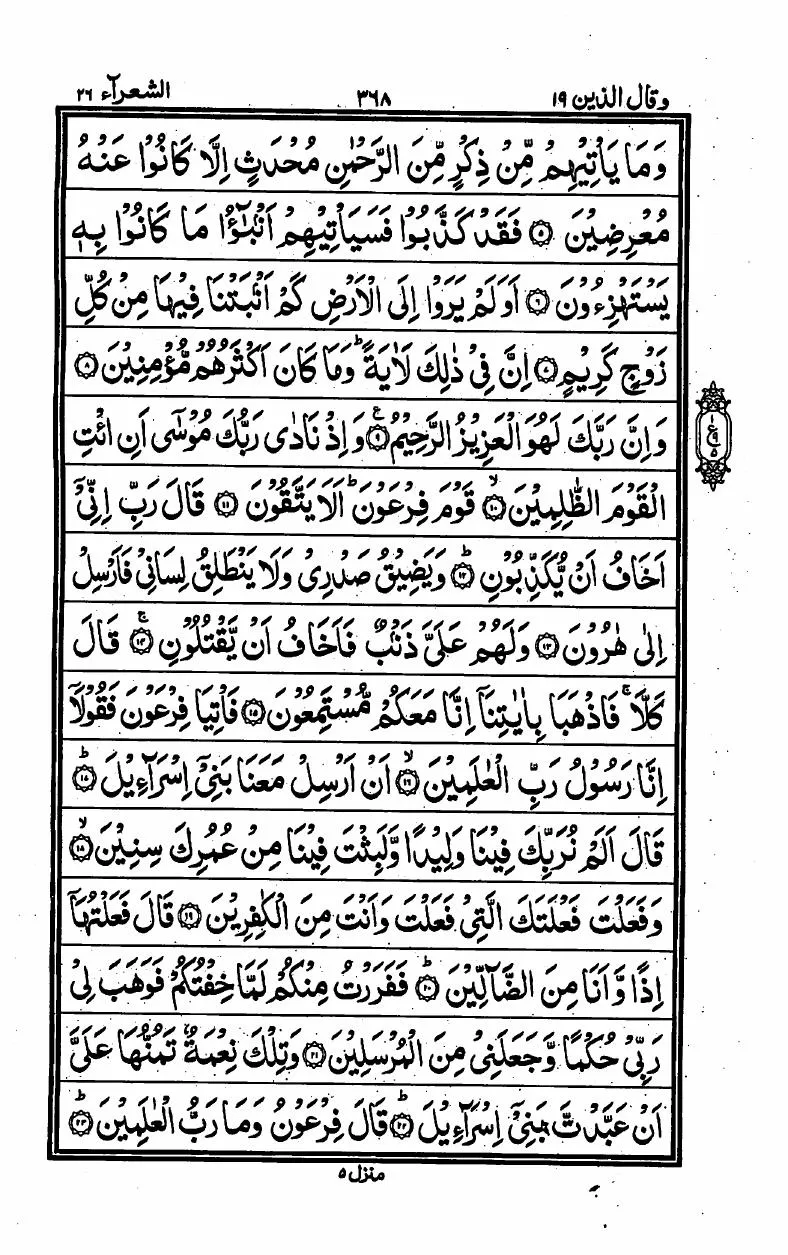 وقال الذين ١٩
٣٦٨
الشعرآء ٢٦
وَمَا يَاْتِيْهِمْ مِّنْ ذِكْرٍ مِّنَ الرَّحْمٰنِ مُحْدَثٍ اِلَّا كَانُوْا عَنْهُ
مُعْرِضِيْنَ ۝٥ فَقَدْ كَذَّبُوْا فَسَيَاْتِيْهِمْ اَنْۢبٰٓؤُا مَا كَانُوْا بِهٖ
يَسْتَهْزِءُوْنَ ۝٦ اَوَلَمْ يَرَوْا اِلَى الْاَرْضِ كَمْ اَنْۢبَتْنَا فِيْهَا مِنْ كُلِّ
زَوْجٍ كَرِيْمٍ ۝٧ اِنَّ فِيْ ذٰلِكَ لَاٰيَةً ؕ وَمَا كَانَ اَكْثَرُهُمْ مُّؤْمِنِيْنَ ۝٨
وَاِنَّ رَبَّكَ لَهُوَ الْعَزِيْزُ الرَّحِيْمُ ۝٩ۧ وَاِذْ نَادٰى رَبُّكَ مُوْسٰٓى اَنِ ائْتِ
الْقَوْمَ الظّٰلِمِيْنَ ۝١٠ۙ قَوْمَ فِرْعَوْنَ ؕ اَلَا يَتَّقُوْنَ ۝١١ قَالَ رَبِّ اِنِّيْٓ
اَخَافُ اَنْ يُّكَذِّبُوْنِ ۝١٢ؕ وَيَضِيْقُ صَدْرِيْ وَلَا يَنْطَلِقُ لِسَانِيْ فَاَرْسِلْ
اِلٰى هٰرُوْنَ ۝١٣ وَلَهُمْ عَلَيَّ ذَنْۢبٌ فَاَخَافُ اَنْ يَّقْتُلُوْنِ ۝١٤ۚ قَالَ
كَلَّا ۚ فَاذْهَبَا بِاٰيٰتِنَآ اِنَّا مَعَكُمْ مُّسْتَمِعُوْنَ ۝١٥ فَاْتِيَا فِرْعَوْنَ فَقُوْلَآ
اِنَّا رَسُوْلُ رَبِّ الْعٰلَمِيْنَ ۝١٦ۙ اَنْ اَرْسِلْ مَعَنَا بَنِيْٓ اِسْرَآءِيْلَ ۝١٧ؕ
قَالَ اَلَمْ نُرَبِّكَ فِيْنَا وَلِيْدًا وَّلَبِثْتَ فِيْنَا مِنْ عُمُرِكَ سِنِيْنَ ۝١٨ۙ
وَفَعَلْتَ فَعْلَتَكَ الَّتِيْ فَعَلْتَ وَاَنْتَ مِنَ الْكٰفِرِيْنَ ۝١٩ قَالَ فَعَلْتُهَآ
اِذًا وَّاَنَا مِنَ الضَّآلِّيْنَ ۝٢٠ؕ فَفَرَرْتُ مِنْكُمْ لَمَّا خِفْتُكُمْ فَوَهَبَ لِيْ
رَبِّيْ حُكْمًا وَّجَعَلَنِيْ مِنَ الْمُرْسَلِيْنَ ۝٢١ وَتِلْكَ نِعْمَةٌ تَمُنُّهَا عَلَيَّ
اَنْ عَبَّدْتَّ بَنِيْٓ اِسْرَآءِيْلَ ۝٢٢ؕ قَالَ فِرْعَوْنُ وَمَا رَبُّ الْعٰلَمِيْنَ ۝٢٣ؕ
١
ع ٩
٥
منزل ٥